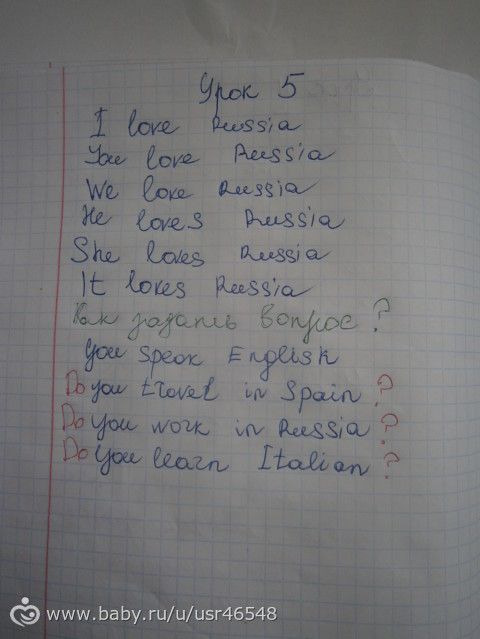 Урок 5
I love Russia
You love Russia
We love Russia
He loves Russia
She loves Russia
It loves Russia
Как задать вопрос?
You speak English
Do you travel in Spain?
Do you work in Russia?
Do you learn Italian?
www.baby.ru/u/usr46548